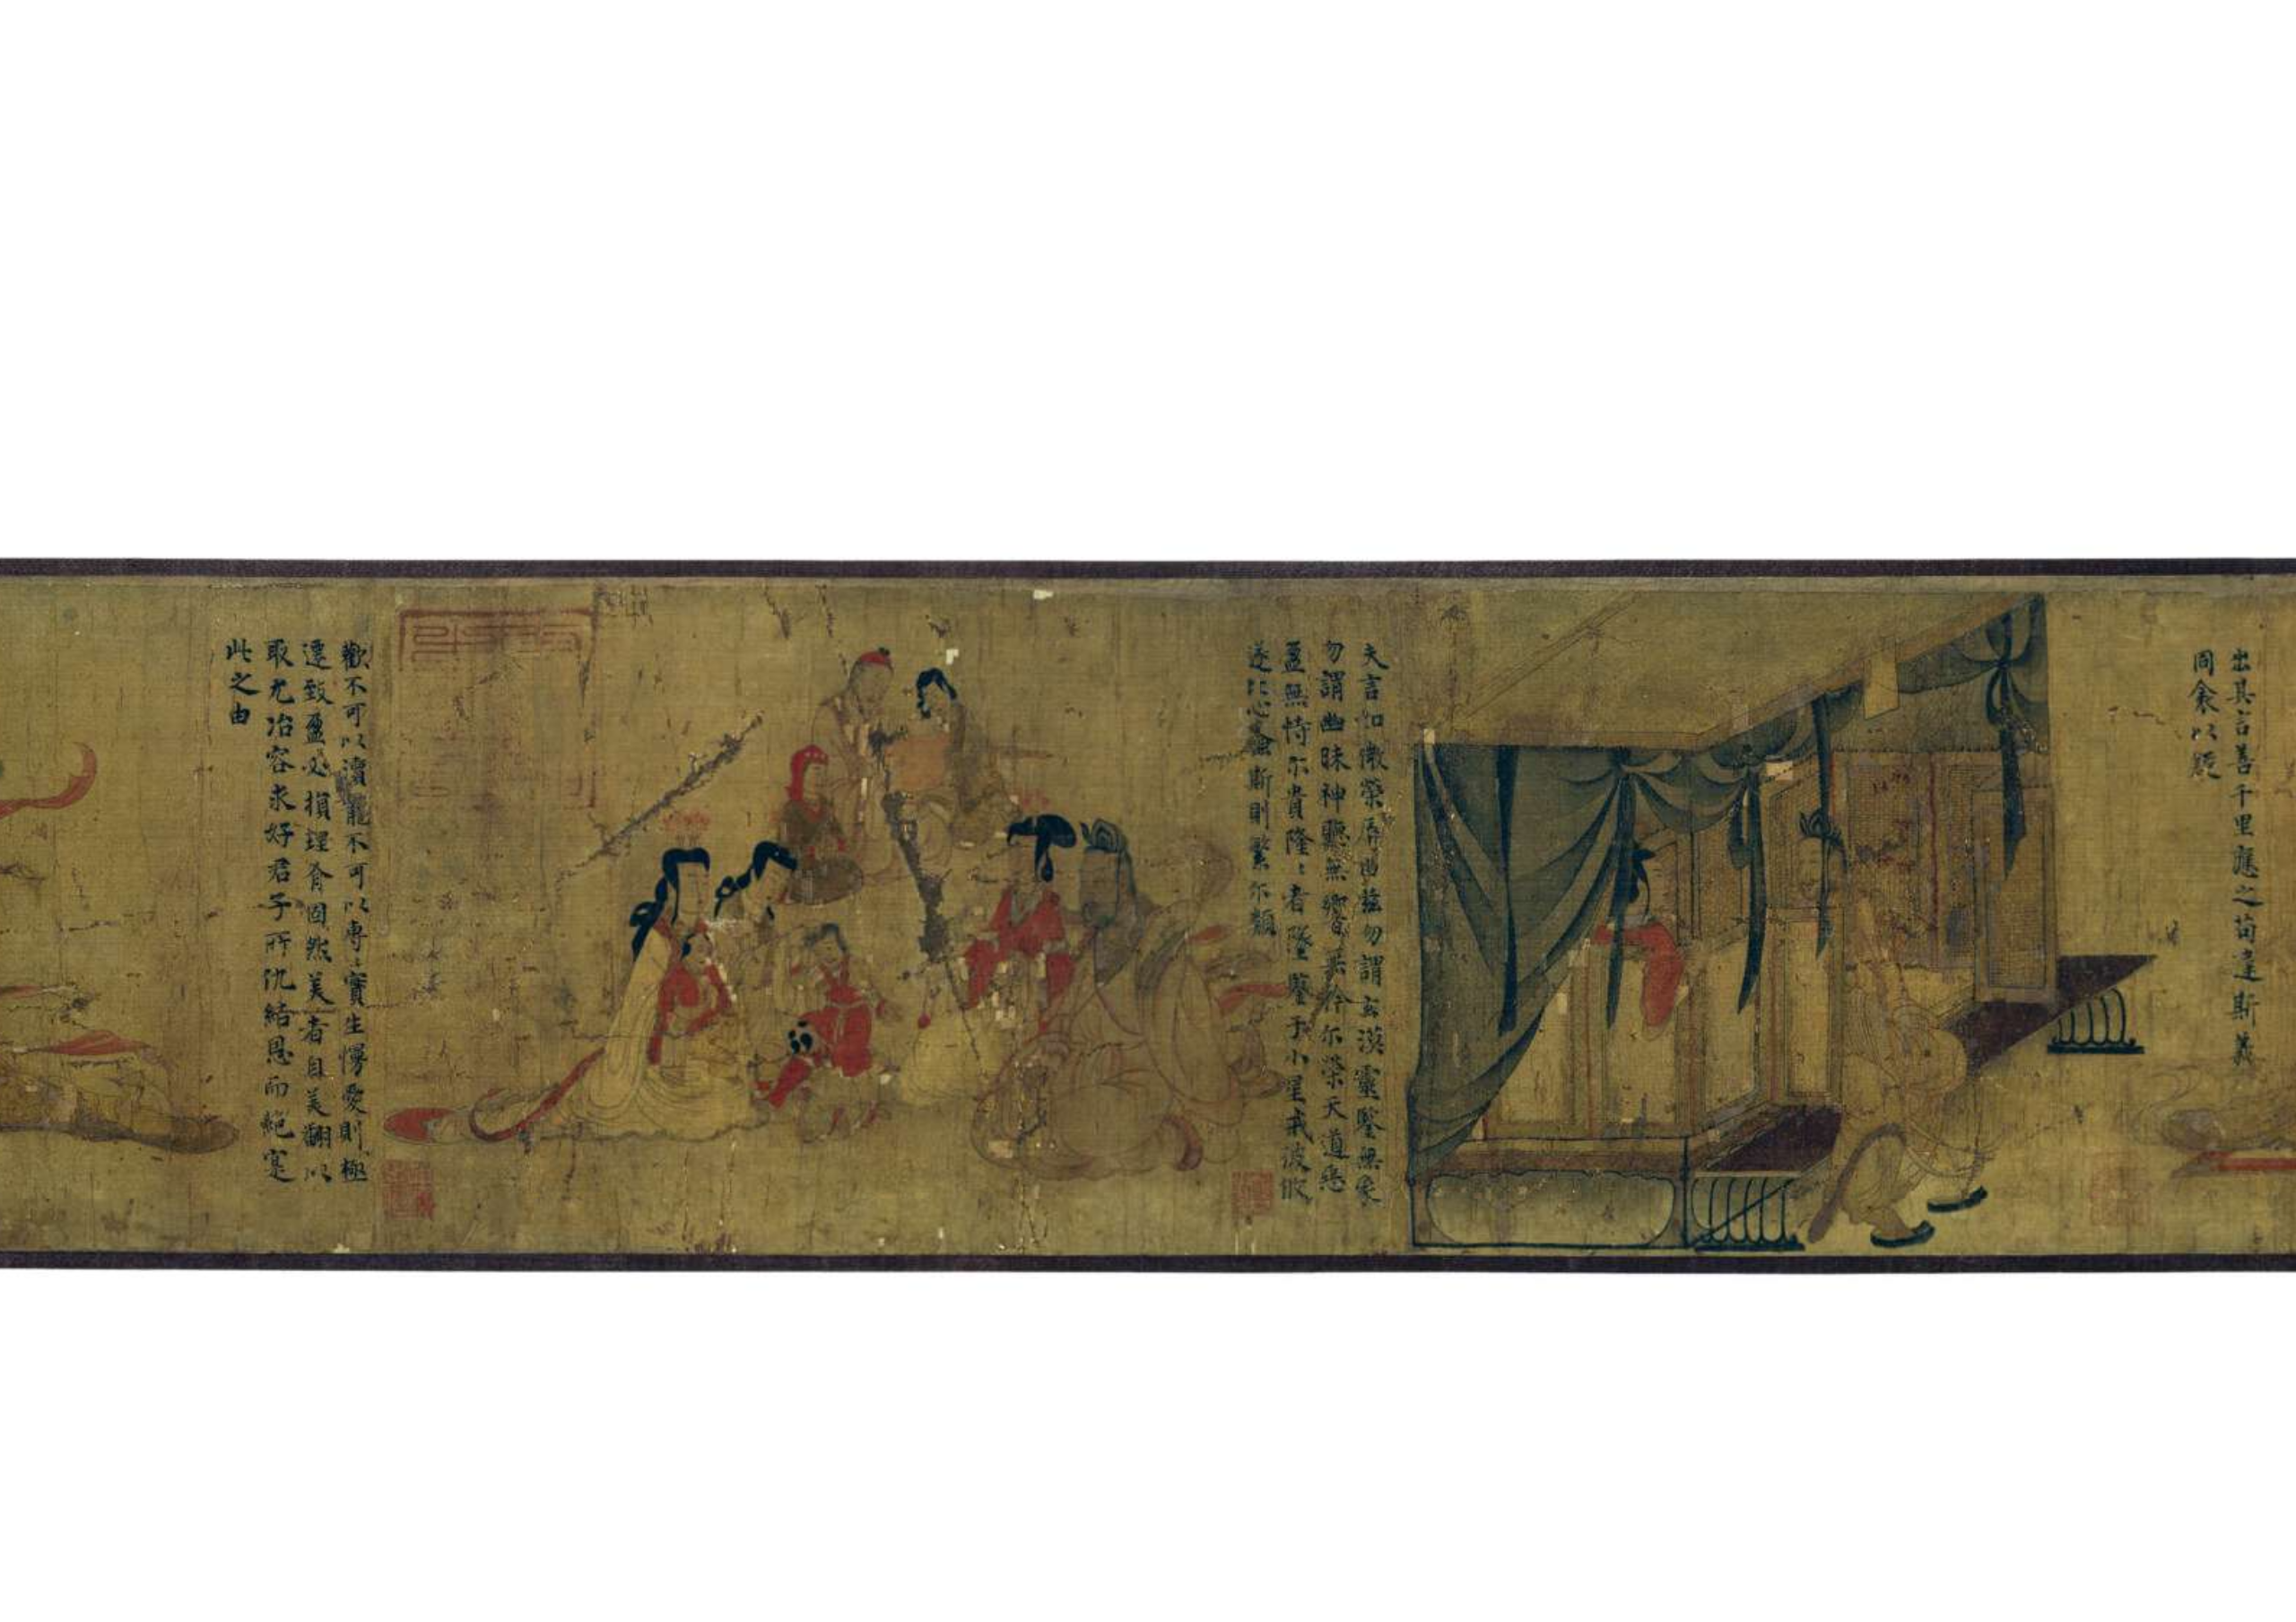 出其言善千里應之苟違斯義
同衾以疑
夫言如微榮辱由茲勿謂玄漠靈鑒無象
勿謂幽昧神聽無響無矜尓榮天道惡
盈無恃尓貴隆〻者墜鑒于小星戒彼攸
遂比心螽斯則繁尓類
歡不可以瀆寵不可以專〻實生慢愛則極
遷致盈必損理有固然美者自美翩以
取尤冶容求好君子所仇結恩而絕寔
此之由